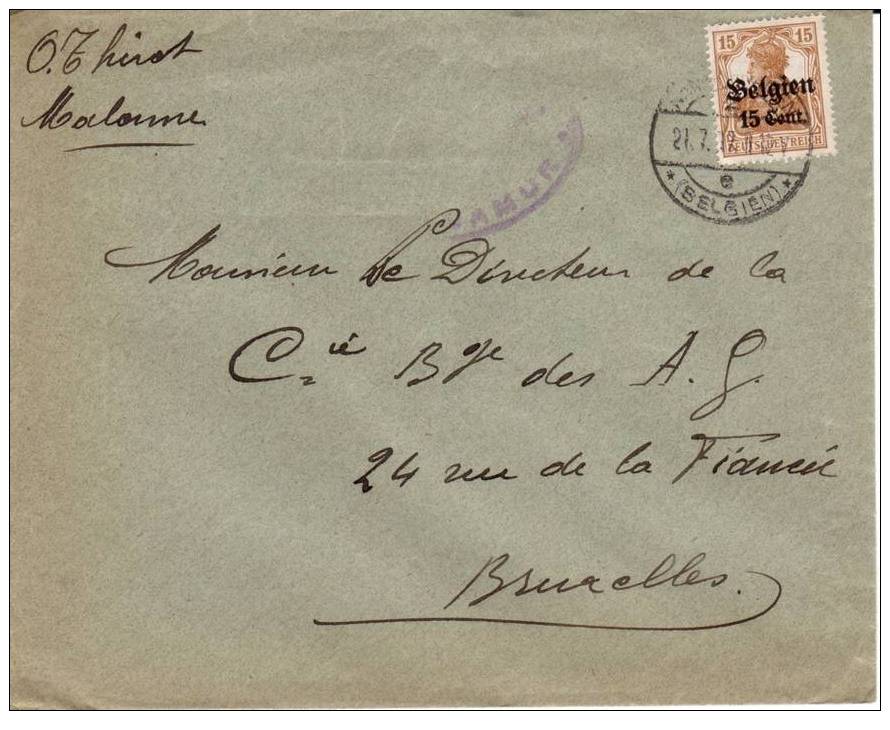 O. Thirot
Malonne
15 15
Belgien
15 Cent.
DEUTSCHES REICH
21.7.
e
* (BELGIEN) *
NAMUR
Monsieur Le Directeur de la
Cie Bge des A. G.
24 rue de la Fiancée
Bruxelles.